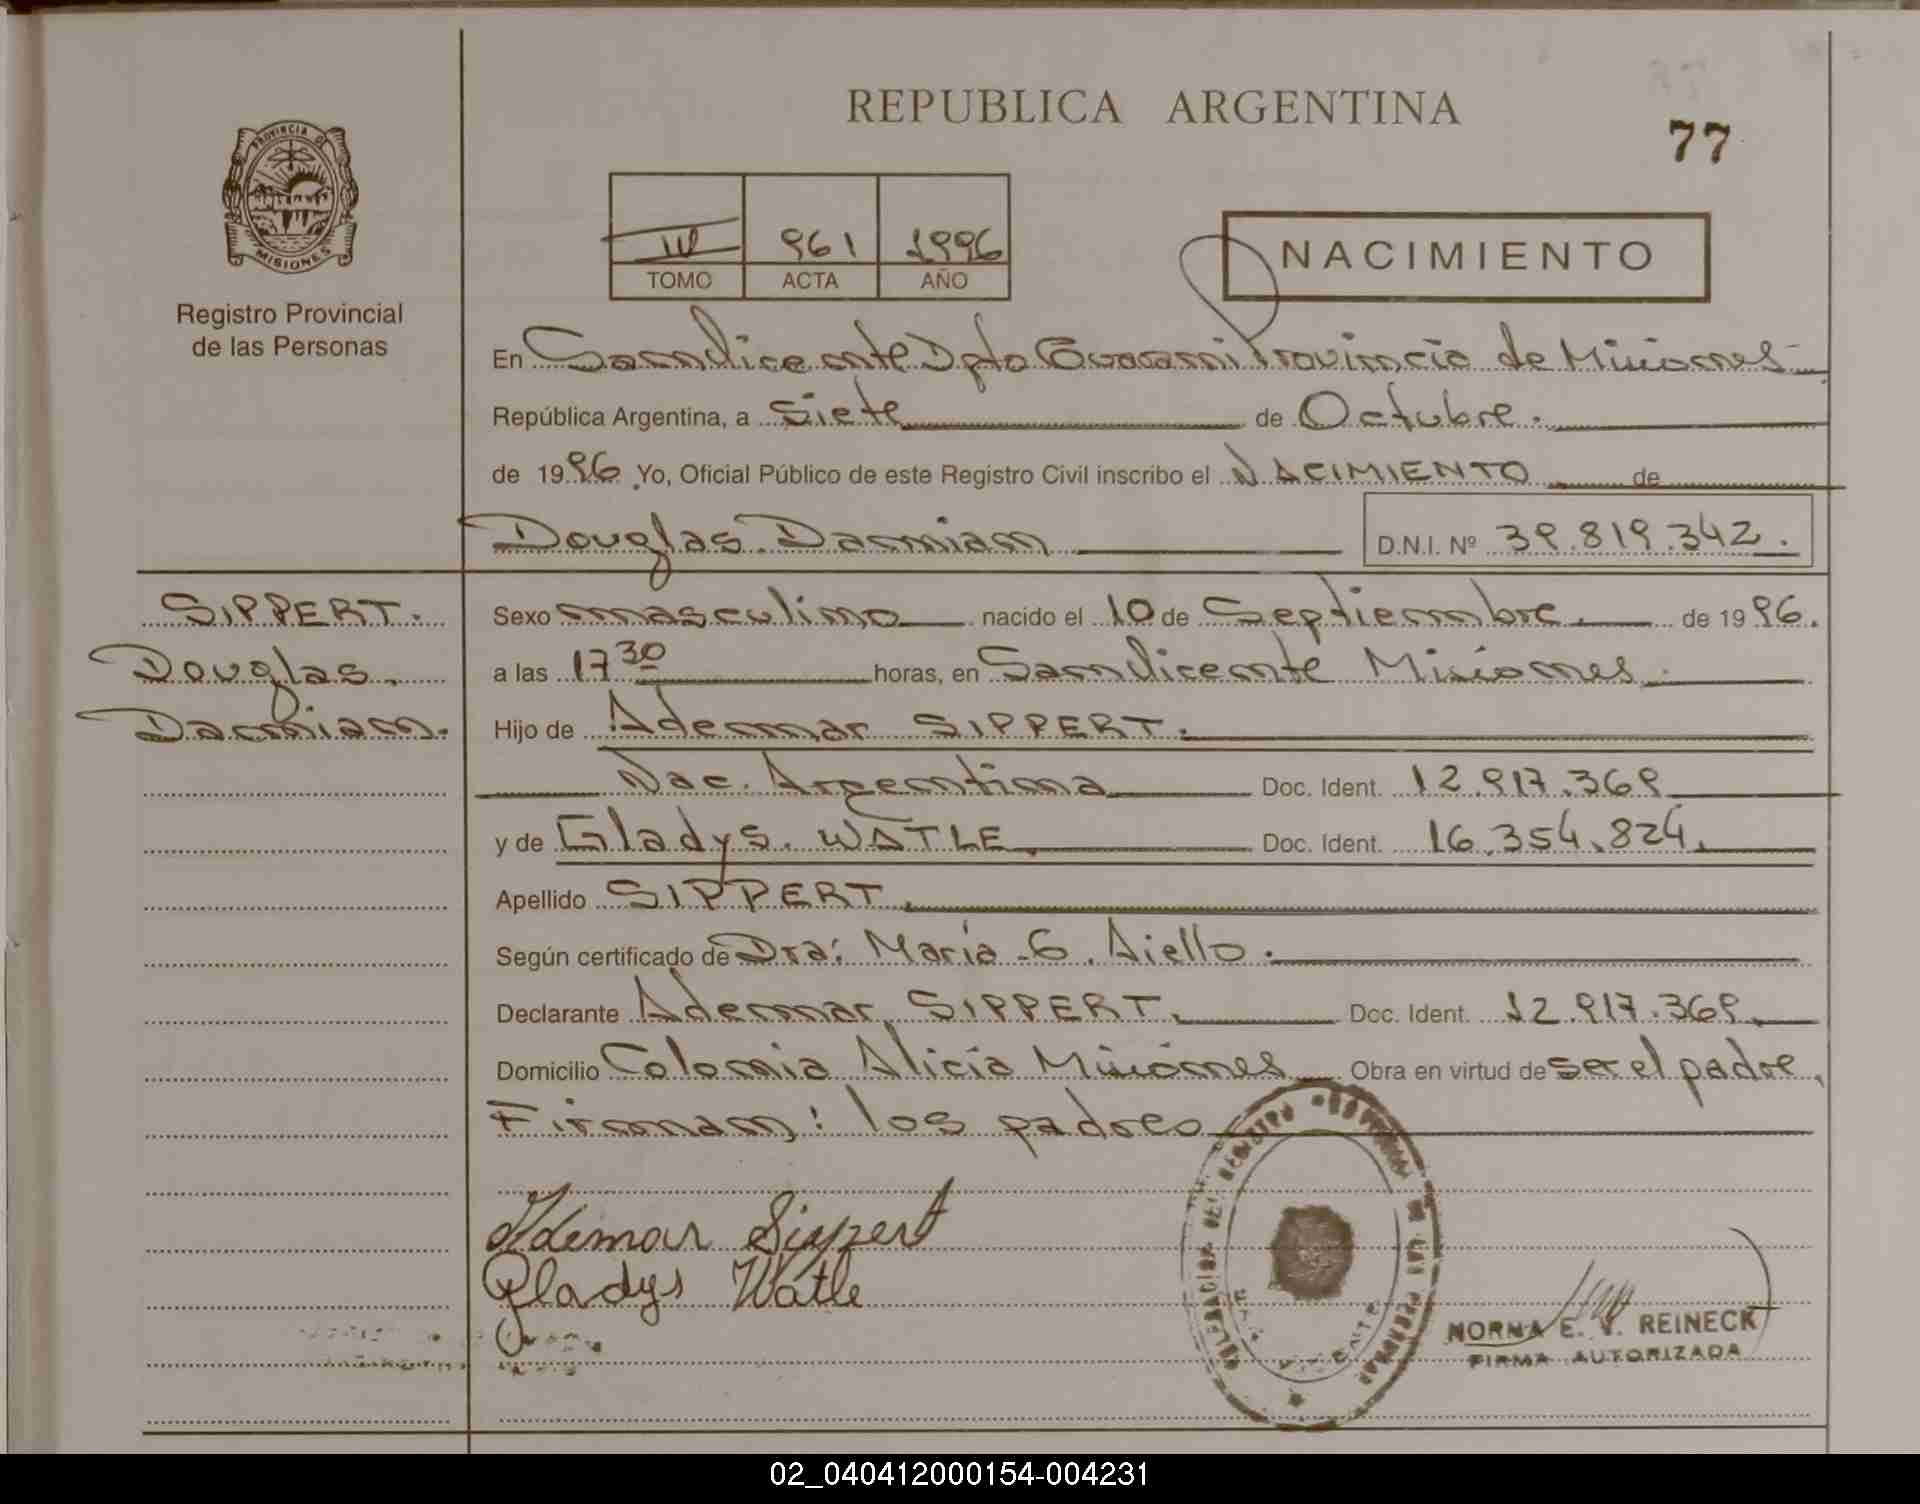 REPUBLICA ARGENTINA
77
PROVINCIA DE
MISIONES
Registro Provincial
de las Personas
IV 961 1996
TOMO ACTA AÑO
NACIMIENTO
En San Vicente Dpto Guarani Provincia de Misiones
República Argentina, a siete de Octubre.
de 1996 Yo, Oficial Público de este Registro Civil inscribo el NACIMIENTO de
Douglas Damian D.N.I. Nº 39.819.342.
SIPPERT.
Douglas.
Damian.
Sexo masculino nacido el 10 de Septiembre. de 1996.
a las 17 30 horas, en San Vicente Misiones.
Hijo de Ademar SIPPERT.
Nac. Argentina Doc. Ident. 12.917.369
y de Gladys. WATLE. Doc. Ident. 16.354.824.
Apellido SIPPERT.
Según certificado de Dra: María G. Aiello.
Declarante Ademar SIPPERT. Doc. Ident. 12.917.369.
Domicilio Colonia Alicia Misiones Obra en virtud de ser el padre.
Firman: los padres
Ademar Sippert
Gladys Watle
DELEGACION DEL REGISTRO PROVINCIAL DE LAS PERSONAS
SAN VICENTE
NORMA E. V. REINECK
FIRMA AUTORIZADA
02_040412000154-004231